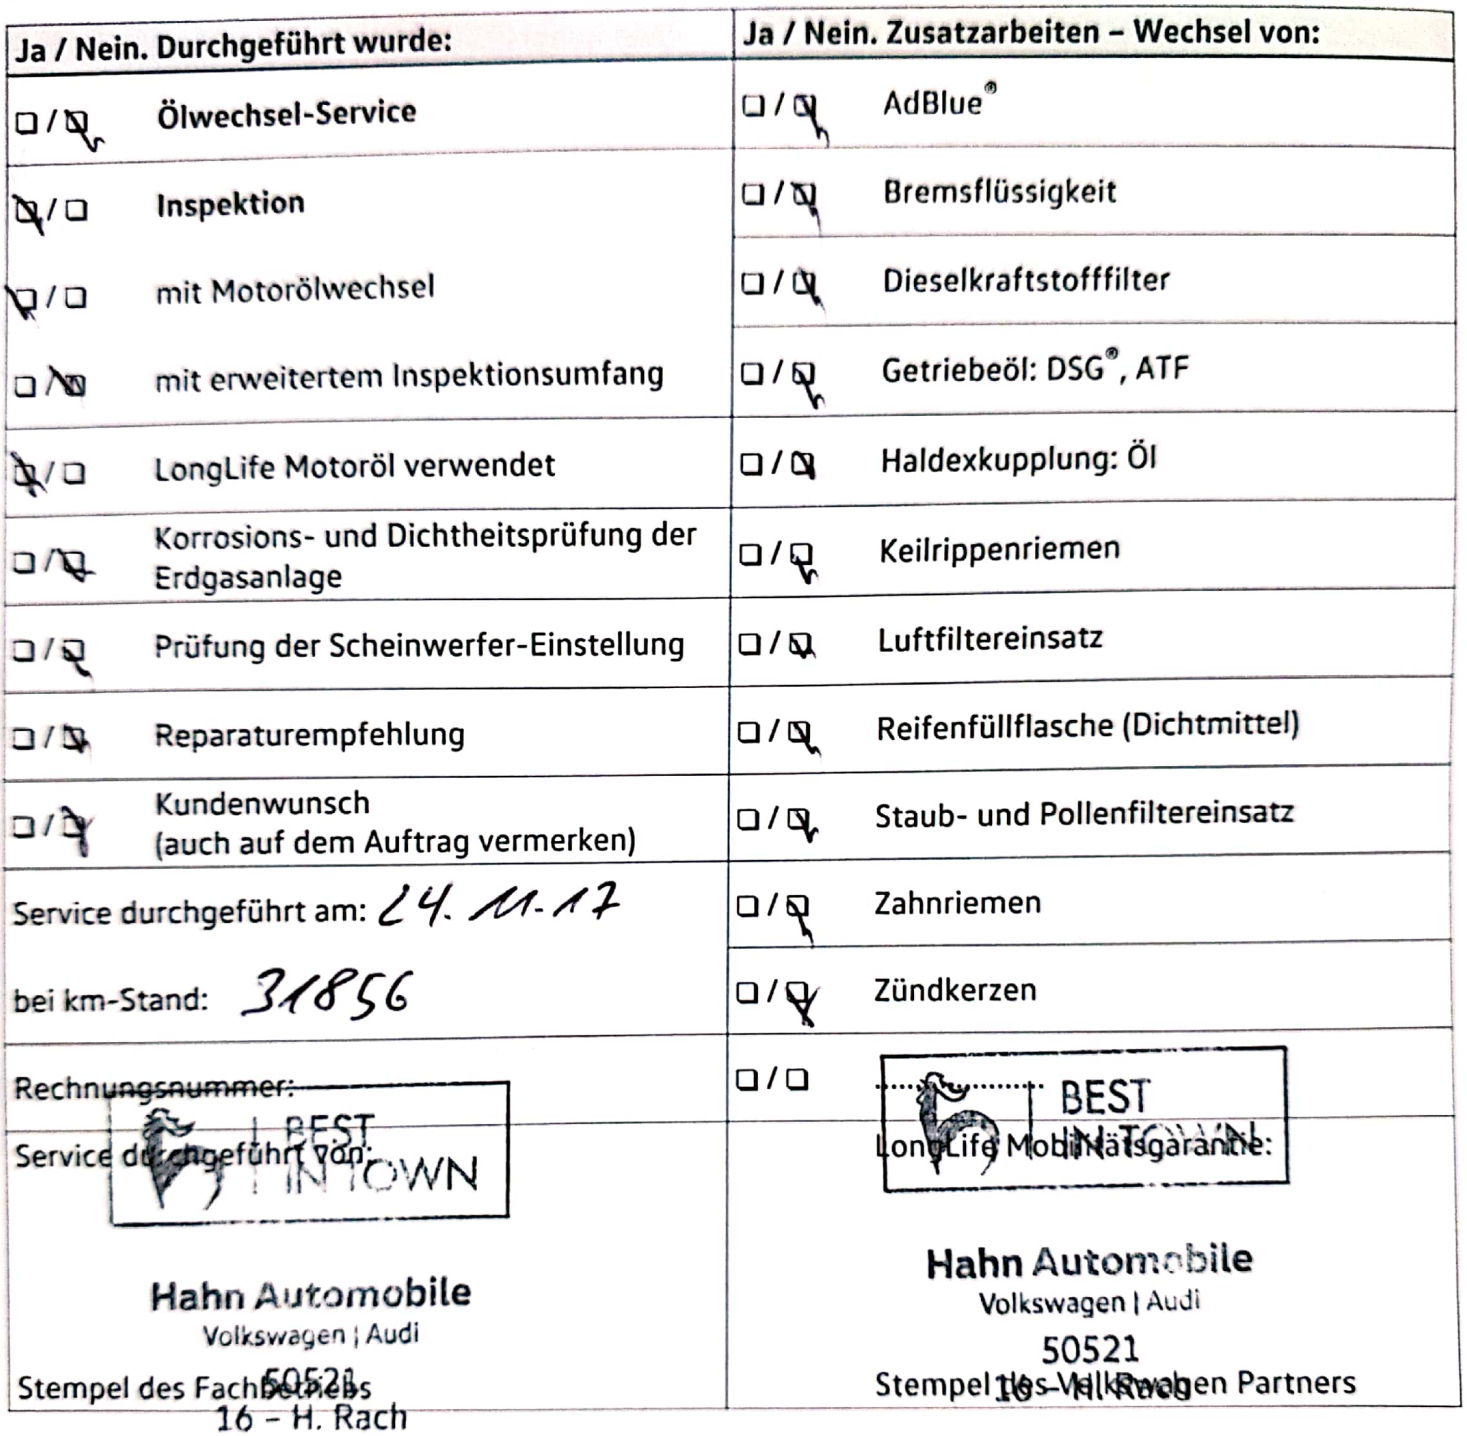 Ja / Nein. Durchgeführt wurde:
☐ / ☒ Ölwechsel-Service
☒ / ☐ Inspektion
☒ / ☐ mit Motorölwechsel
☐ / ☒ mit erweitertem Inspektionsumfang
☒ / ☐ LongLife Motoröl verwendet
☐ / ☒ Korrosions- und Dichtheitsprüfung der
Erdgasanlage
☐ / ☒ Prüfung der Scheinwerfer-Einstellung
☐ / ☒ Reparaturempfehlung
☐ / ☒ Kundenwunsch
(auch auf dem Auftrag vermerken)
Service durchgeführt am: 24.11.17
bei km-Stand: 31856
Rechnungsnummer:
Service durchgeführt von:
BEST
IN TOWN
Hahn Automobile
Volkswagen | Audi
50521
Stempel des Fachbetriebs
16 – H. Rach
Ja / Nein. Zusatzarbeiten – Wechsel von:
☐ / ☒ AdBlue®
☐ / ☒ Bremsflüssigkeit
☐ / ☒ Dieselkraftstofffilter
☐ / ☒ Getriebeöl: DSG®, ATF
☐ / ☒ Haldexkupplung: Öl
☐ / ☒ Keilrippenriemen
☐ / ☒ Luftfiltereinsatz
☐ / ☒ Reifenfüllflasche (Dichtmittel)
☐ / ☒ Staub- und Pollenfiltereinsatz
☐ / ☒ Zahnriemen
☐ / ☒ Zündkerzen
☐ / ☐ ....................
BEST
IN TOWN
LongLife Mobilitätsgarantie:
Hahn Automobile
Volkswagen | Audi
50521
Stempel des Volkswagen Partners
16 – H. Rach